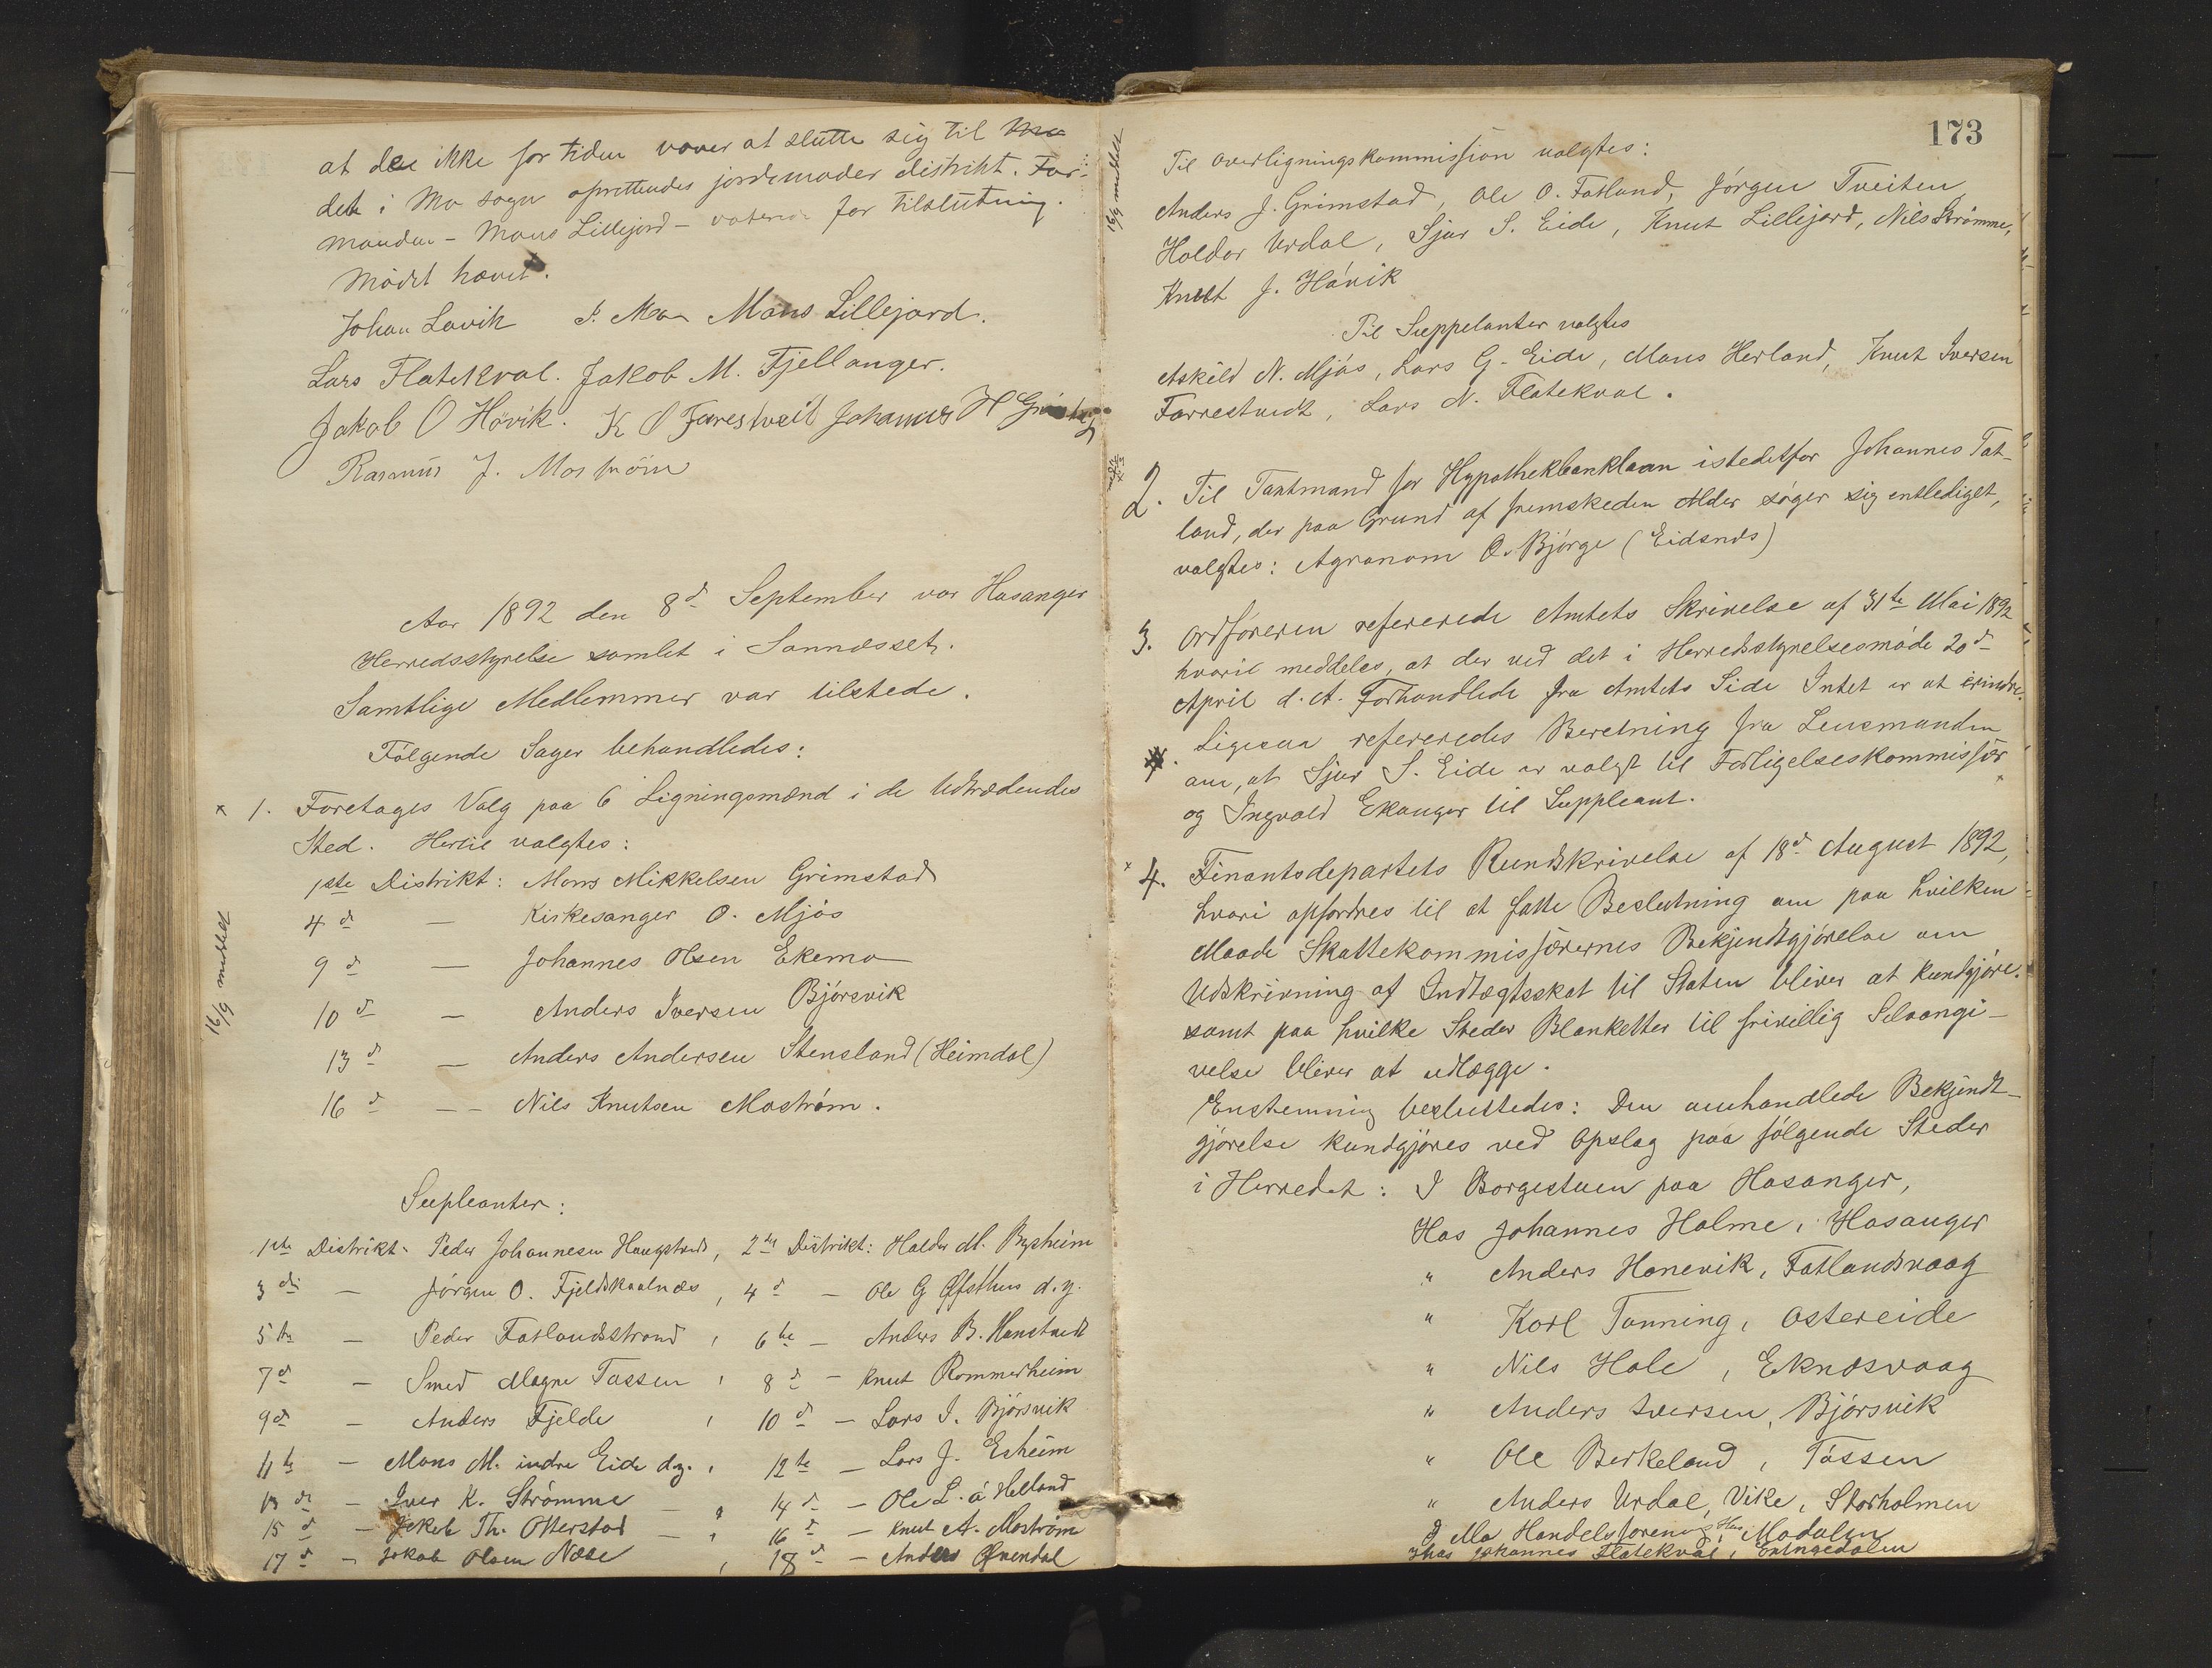 at dee ikke for tiden vover at slutte sig til
det i Mo sogn oprettendes jordemoder distrikt. For-
manden - Mons Lillejord - voterer for tilslutning.
Mødet hævet.
Johan Lavik I. Mo Mons Lillejord.
Lars Flatekval. Jakob M. Fjellanger.
Jakob O Hövik. K O Farestveit Johannes H
Rasmus J. Moström
Aar 1892 den 8d September var Hosanger
Herredsstyrelse samlet i Sannesset.
Samtlige Medlemmer var tilstede.
Følgende Sager behandledes:
x 1. Foretoges Valg paa 6 Ligningsmænd i de Udtrædendes
Sted. Hertil valgtes:
1ste Distrikt: Mons Mikkelsen Grimstad
4d — Kirkesanger O. Mjøs
9d — Johannes Olsen Ekemo
10d — Anders Iversen Bjørsvik
13d — Anders Andersen Stensland (Heimdal)
16d — Nils Knutsen Mostrøm.
16/9 meddelt
Supleanter:
1ste Distrikt. Peder Johannesen Haugstad, 2den Distrikt: Haldor M. Bysheim
3die — Jørgen O. Fjeldskaalnes, 4d — Ole G Øfsthus d.y.
5te — Peder Fatlandsstrand, 6te — Anders B. Hanstveit
7d — Smed Magne Tossen, 8d — Knut Rommarheim
9d — Anders Fjelde, 10d — Lars I. Bjørsvik
11te — Mons M. indre Eide d.y., 12te — Lars J. Esheim
13de — Iver K. Strømme — , 14d — Ole L. á Helland
15d — Jakob Th. Otterstad — , 16d — Knut A. Mostrøm
17d — Jakob Olsen Næse, 18d — Anders Øvendal
173
16/9 meddelt
Til Overligningskommission valgtes:
Anders J. Grimstad, Ole O. Fatland, Jørgen Tveiten
Haldor Urdal, Sjur S. Eide, Knut Lillejord, Nils Strømme,
Knut J. Hövik
Til Suppelanter valgtes
Askild N. Mjøs, Lars G. Eide, Mons Herland, Knut Iversen
Farrestveit, Lars N. Flatekval.
2. Til Taxtmand for Hypothekbanklaan istedetfor Johannes Fat-
land, der paa Grund af fremskeden Alder søger sig entlediget,
valgtes: Agronom O. Bjørge (Eidsnes)
3. Ordføreren refererede Amtets Skrivelse af 31te Mai 1892
hvori meddeles, at der ved det i Herredsstyrelsesmøde 20d
April d. A. Forhandlede fra Amtets Side Intet er at erindre.
Ligesaa refereredes Beretning fra Lensmanden
om, at Sjur S. Eide er valgt til Forligelseskommissær
og Ingvald Ekanger til Suppleant.
x 4. Finantsdepartets Rundskrivelse af 18d August 1892,
hvori opfordres til at fatte Beslutning om paa hvilken
Maade Skattekommissærernes Bekjendtgjørelse om
Udskrivning af Indtægtsskat til Staten bliver at kundgjøre.
samt paa hvilke Steder Blanketter til frivillig Selvangi-
velse bliver at udlægge.
Enstemmig besluttedes: Den omhandlede Bekjendt-
gjørelse kundgjøres ved Opslag paa følgende Steder
i Herredet: I Borgestuen paa Hosanger,
Hos Johannes Holme, Hosanger
" Anders Hanevik, Fatlandsvaag
" Karl Tanning, Ostereide
" Nils Hole, Eknæsvaag
" Anders Iversen, Bjørsvik
" Ole Berkeland, Tøssen
" Anders Urdal, Vike, Storholmen
I Mo Handelsforening, Modalen
Hos Johannes Flatekval, Eksingedalen